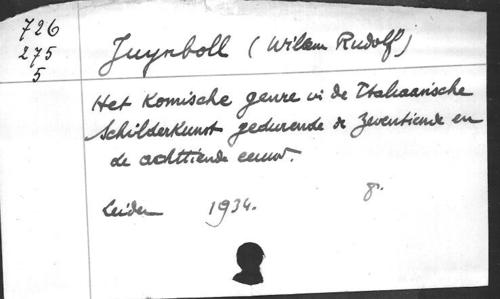 726
275
5
Juynboll (Willem Rudolf)
Het Komische genre in de Italiaansche
Schilderkunst gedurende de Zeventiende en
de achttiende eeuw.
Leiden 1934. 8°.